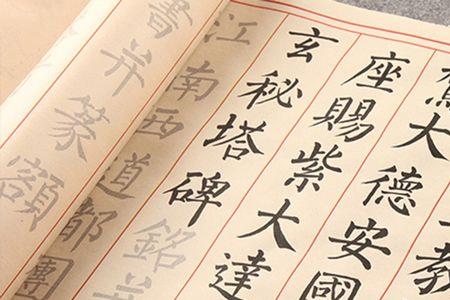 教
駕大德安國
座賜紫大達
玄秘塔碑銘并
江南西道都團
書并篆額